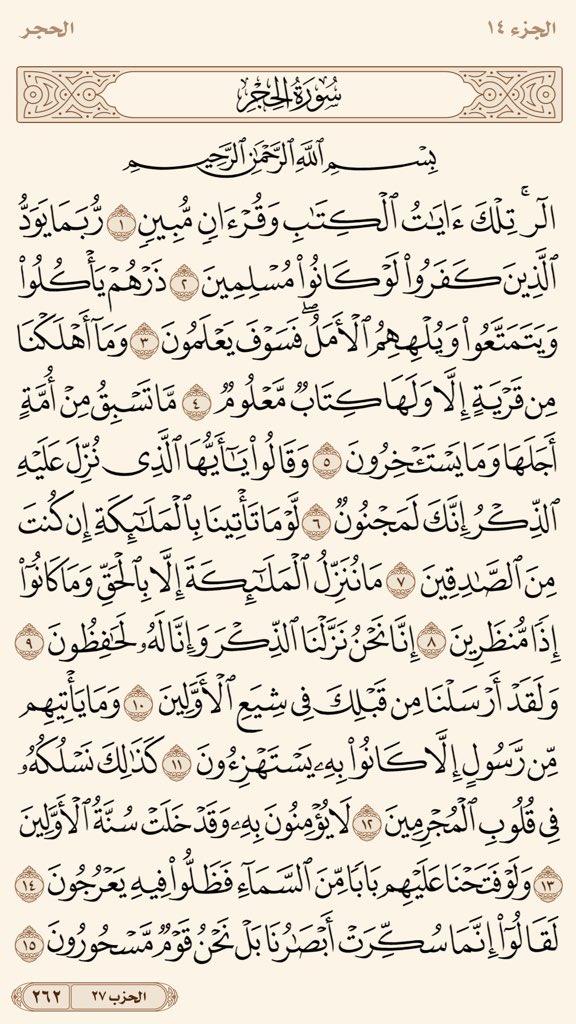 الجزء ١٤
الحجر
سُورَةُ الحِجْرِ
بِسْمِ ٱللَّهِ ٱلرَّحْمَٰنِ ٱلرَّحِيمِ
الٓرۚ تِلْكَ ءَايَٰتُ ٱلْكِتَٰبِ وَقُرْءَانٖ مُّبِينٖ ١ رُّبَمَا يَوَدُّ
ٱلَّذِينَ كَفَرُواْ لَوْ كَانُواْ مُسْلِمِينَ ٢ ذَرْهُمْ يَأْكُلُواْ
وَيَتَمَتَّعُواْ وَيُلْهِهِمُ ٱلْأَمَلُۖ فَسَوْفَ يَعْلَمُونَ ٣ وَمَآ أَهْلَكْنَا
مِن قَرْيَةٍ إِلَّا وَلَهَا كِتَابٞ مَّعْلُومٞ ٤ مَّا تَسْبِقُ مِنْ أُمَّةٍ
أَجَلَهَا وَمَا يَسْتَـْٔخِرُونَ ٥ وَقَالُواْ يَٰٓأَيُّهَا ٱلَّذِي نُزِّلَ عَلَيْهِ
ٱلذِّكْرُ إِنَّكَ لَمَجْنُونٞ ٦ لَّوْ مَا تَأْتِينَا بِٱلْمَلَٰٓئِكَةِ إِن كُنتَ
مِنَ ٱلصَّٰدِقِينَ ٧ مَا نُنَزِّلُ ٱلْمَلَٰٓئِكَةَ إِلَّا بِٱلْحَقِّ وَمَا كَانُوٓاْ
إِذٗا مُّنظَرِينَ ٨ إِنَّا نَحْنُ نَزَّلْنَا ٱلذِّكْرَ وَإِنَّا لَهُۥ لَحَٰفِظُونَ ٩
وَلَقَدْ أَرْسَلْنَا مِن قَبْلِكَ فِي شِيَعِ ٱلْأَوَّلِينَ ١٠ وَمَا يَأْتِيهِم
مِّن رَّسُولٍ إِلَّا كَانُواْ بِهِۦ يَسْتَهْزِءُونَ ١١ كَذَٰلِكَ نَسْلُكُهُۥ
فِي قُلُوبِ ٱلْمُجْرِمِينَ ١٢ لَا يُؤْمِنُونَ بِهِۦ وَقَدْ خَلَتْ سُنَّةُ ٱلْأَوَّلِينَ
١٣ وَلَوْ فَتَحْنَا عَلَيْهِم بَابٗا مِّنَ ٱلسَّمَآءِ فَظَلُّواْ فِيهِ يَعْرُجُونَ ١٤
لَقَالُوٓاْ إِنَّمَا سُكِّرَتْ أَبْصَٰرُنَا بَلْ نَحْنُ قَوْمٞ مَّسْحُورُونَ ١٥
الحزب ٢٧
٢٦٢